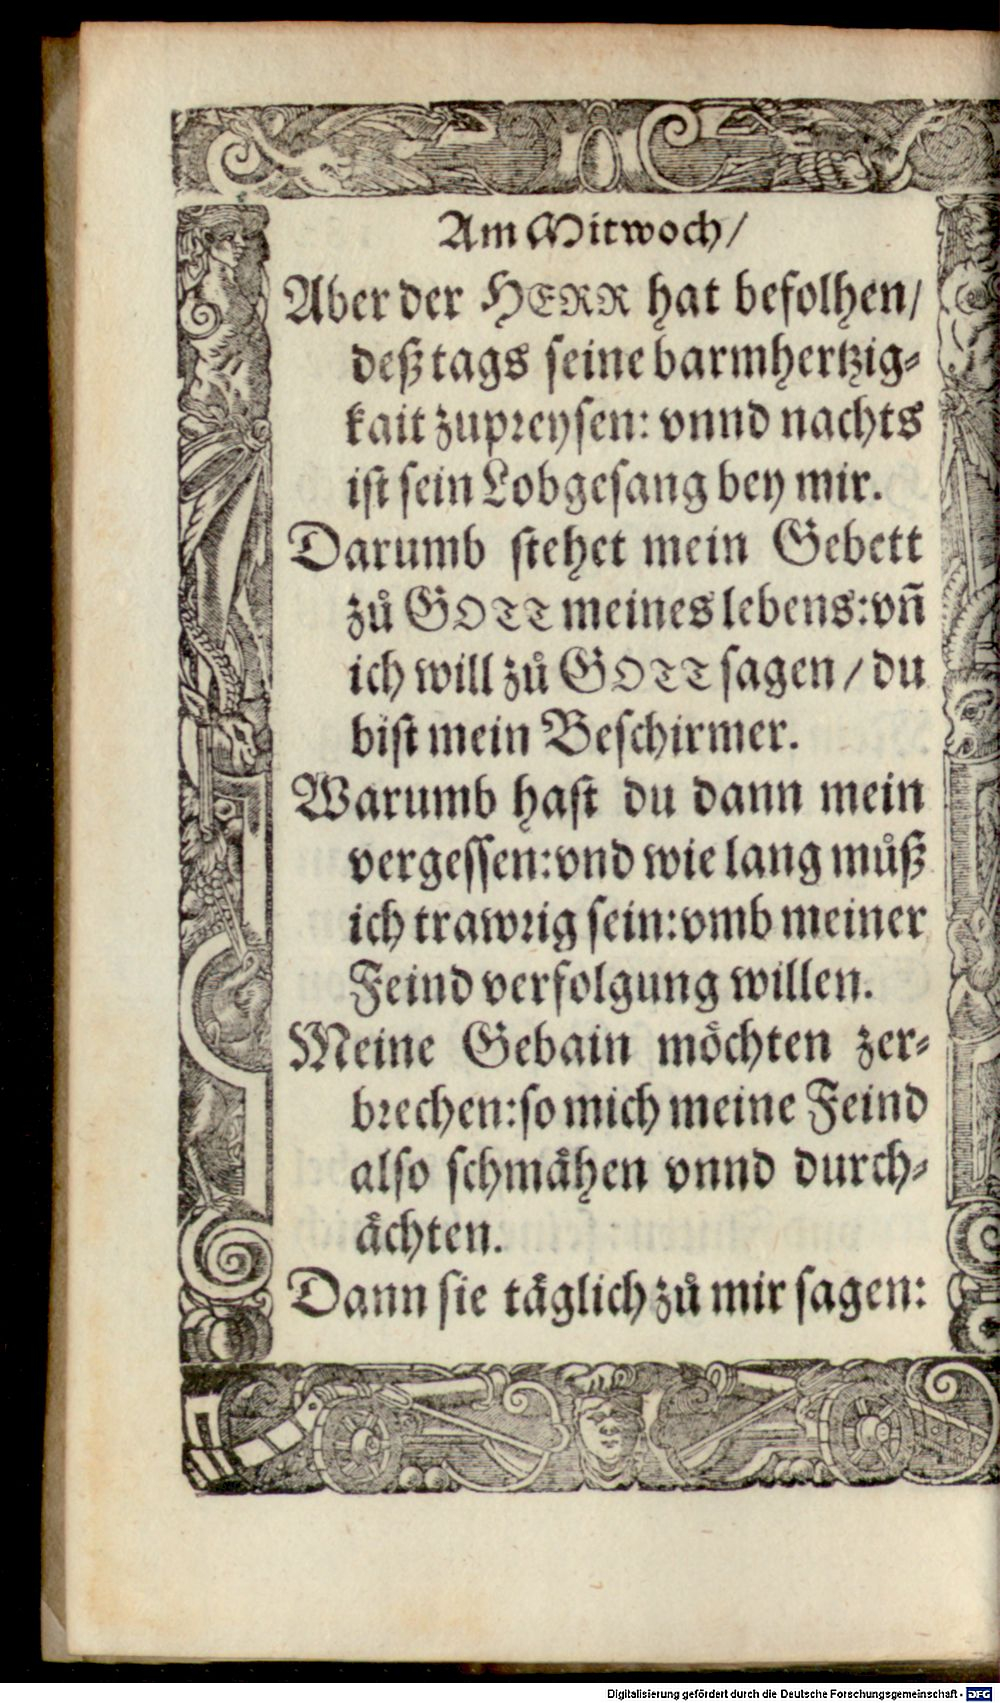 Am Mitwoch/
Aber der HERR hat befolhen/
deß tags seine barmhertzig-
kait zupreysen: vnnd nachts
ist sein Lobgesang bey mir.
Darumb stehet mein Gebett
zů GOTT meines lebens: vñ
ich will zů GOTT sagen / du
bist mein Beschirmer.
Warumb hast du dann mein
vergessen: vnd wie lang můß
ich trawrig sein: vmb meiner
Feind verfolgung willen.
Meine Gebain möchten zer-
brechen: so mich meine Feind
also schmähen vnnd durch-
ächten.
Dann sie täglich zů mir sagen:
Digitalisierung gefördert durch die Deutsche Forschungsgemeinschaft - DFG